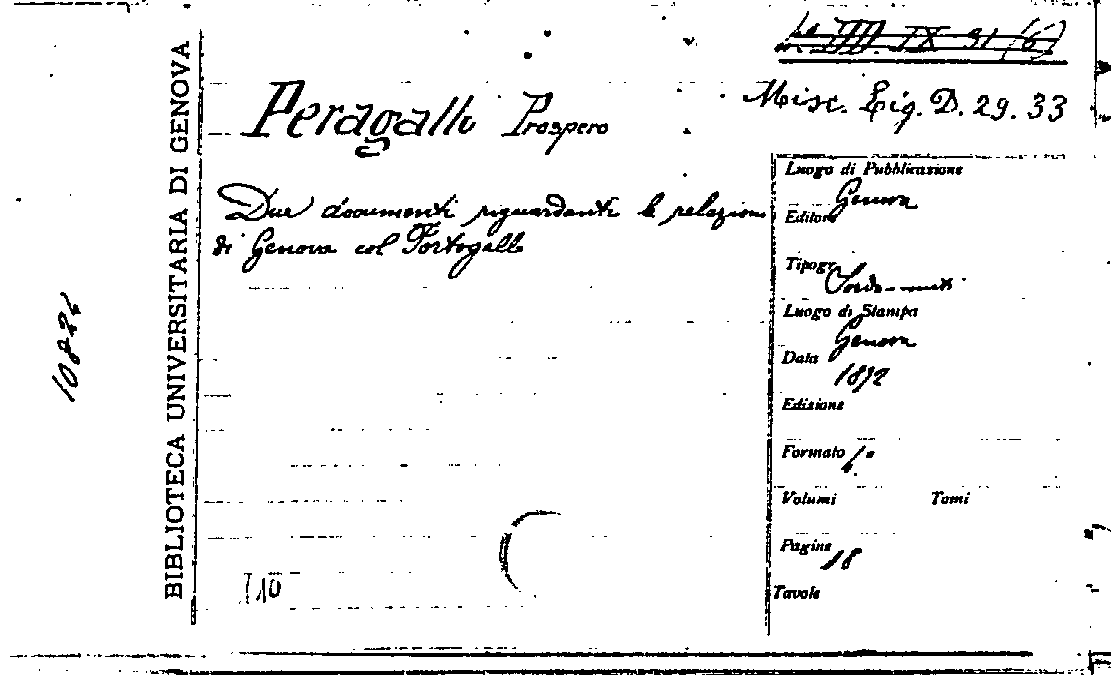 Misc. Lig. D. 29. 33
Peragallo Prospero
Due documenti riguardanti le relazioni
di Genova col Portogallo
BIBLIOTECA UNIVERSITARIA DI GENOVA
10824
110
Luogo di Pubblicazione
Genova
Editore
Tipogr. Sordo-muti
Luogo di Stampa
Genova
Data
1892
Edizione
Formato
Volumi Tomi
Pagine 18
Tavole